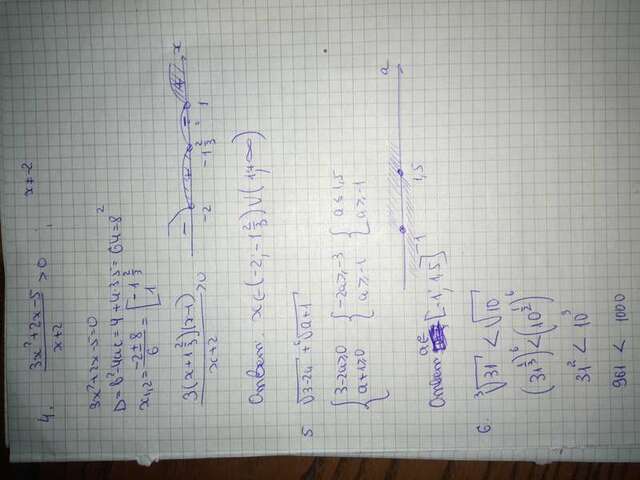 4. (3x²+2x-5)/(x+2) > 0, x≠-2
3x²+2x-5=0
D=b²-4ac=4+4·3·5=64=8²
x₁,₂= (-2±8)/6 = [-1 2/3
1
3(x+1 2/3)(x-1)/(x+2) >0
- + - + x
-2 -1 2/3 1
Ответ: x∈(-2; -1 2/3)∪(1; +∞)
5 √3-2a + ⁶√a+1
{3-2a≥0 {-2a≥-3 {a≤1,5
a+1≥0 a≥-1 a≥-1
-1 1,5 a
Ответ a∈ [-1; 1,5]
6. ³√31 < √10
(31^(1/3))⁶ < (10^(1/2))⁶
31² < 10³
961 < 1000